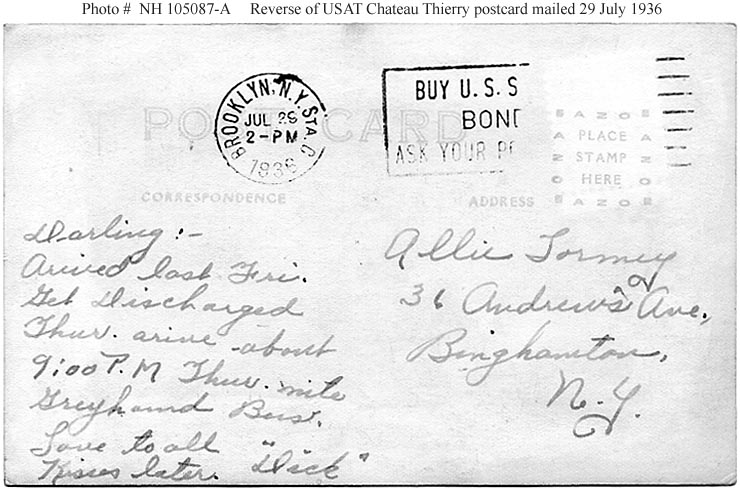 Photo # NH 105087-A Reverse of USAT Chateau Thierry postcard mailed 29 July 1936
POST CARD
BROOKLYN, N.Y. STA. C
JUL 29
2-PM
1936
BUY U.S. S
BOND
ASK YOUR P
AZOE
A PLACE A
Z STAMP Z
O HERE O
AZOE
CORRESPONDENCE
ADDRESS
Darling:-
Arived last Fri.
Get Discharged
Thur. arive about
9:00 P.M Thur. nite
Greyhound Bus.
Love to all
Kisses later. "Dick"
Allie Tormey
36 Andrews Ave.,
Binghamton,
N.Y.